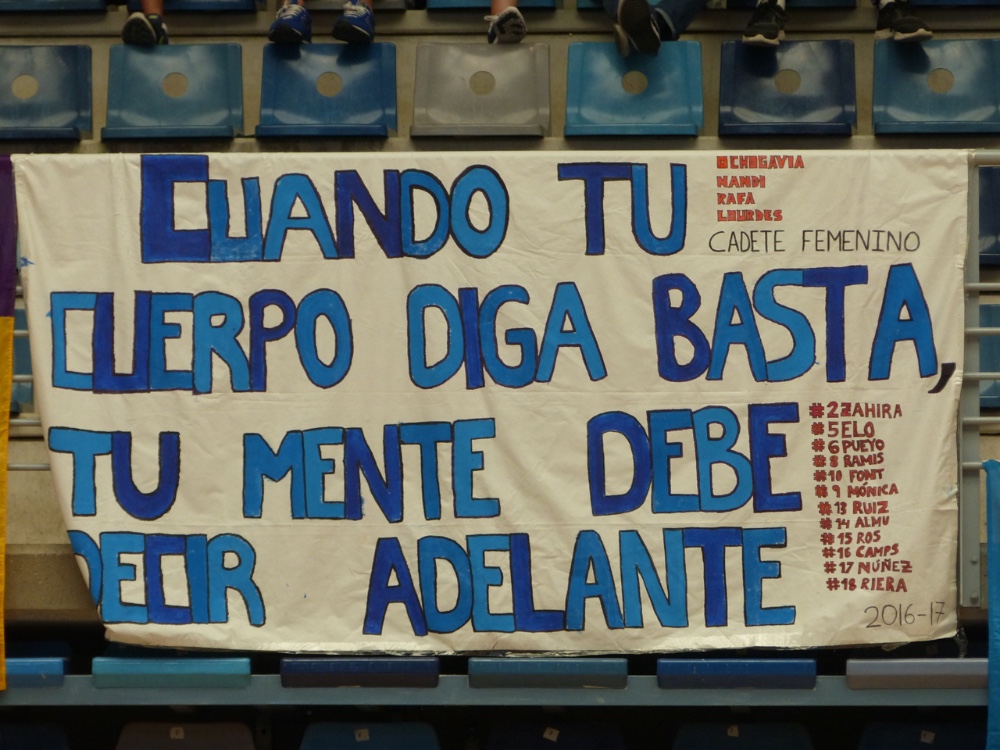 CUANDO TU
OCHOGAVIA
NANDI
RAFA
LOURDES
CADETE FEMENINO
CUERPO DIGA BASTA,
TU MENTE DEBE
DECIR ADELANTE
#2 ZAHIRA
#5 ELO
#6 PUEYO
#8 RAMIS
#10 FONT
#9 MÓNICA
#13 RUIZ
#14 ALMU
#15 ROS
#16 CAMPS
#17 NÚÑEZ
#18 RIERA
2016-17